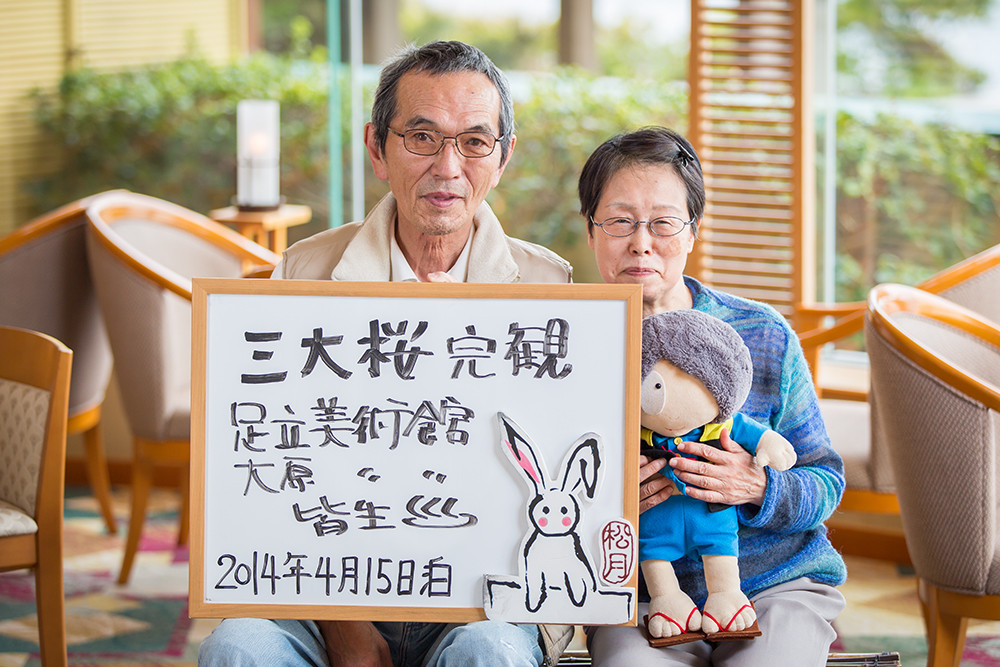 三大桜完観
足立美術館
大原 〃 〃
皆生♨
2014年4月15日泊
松月